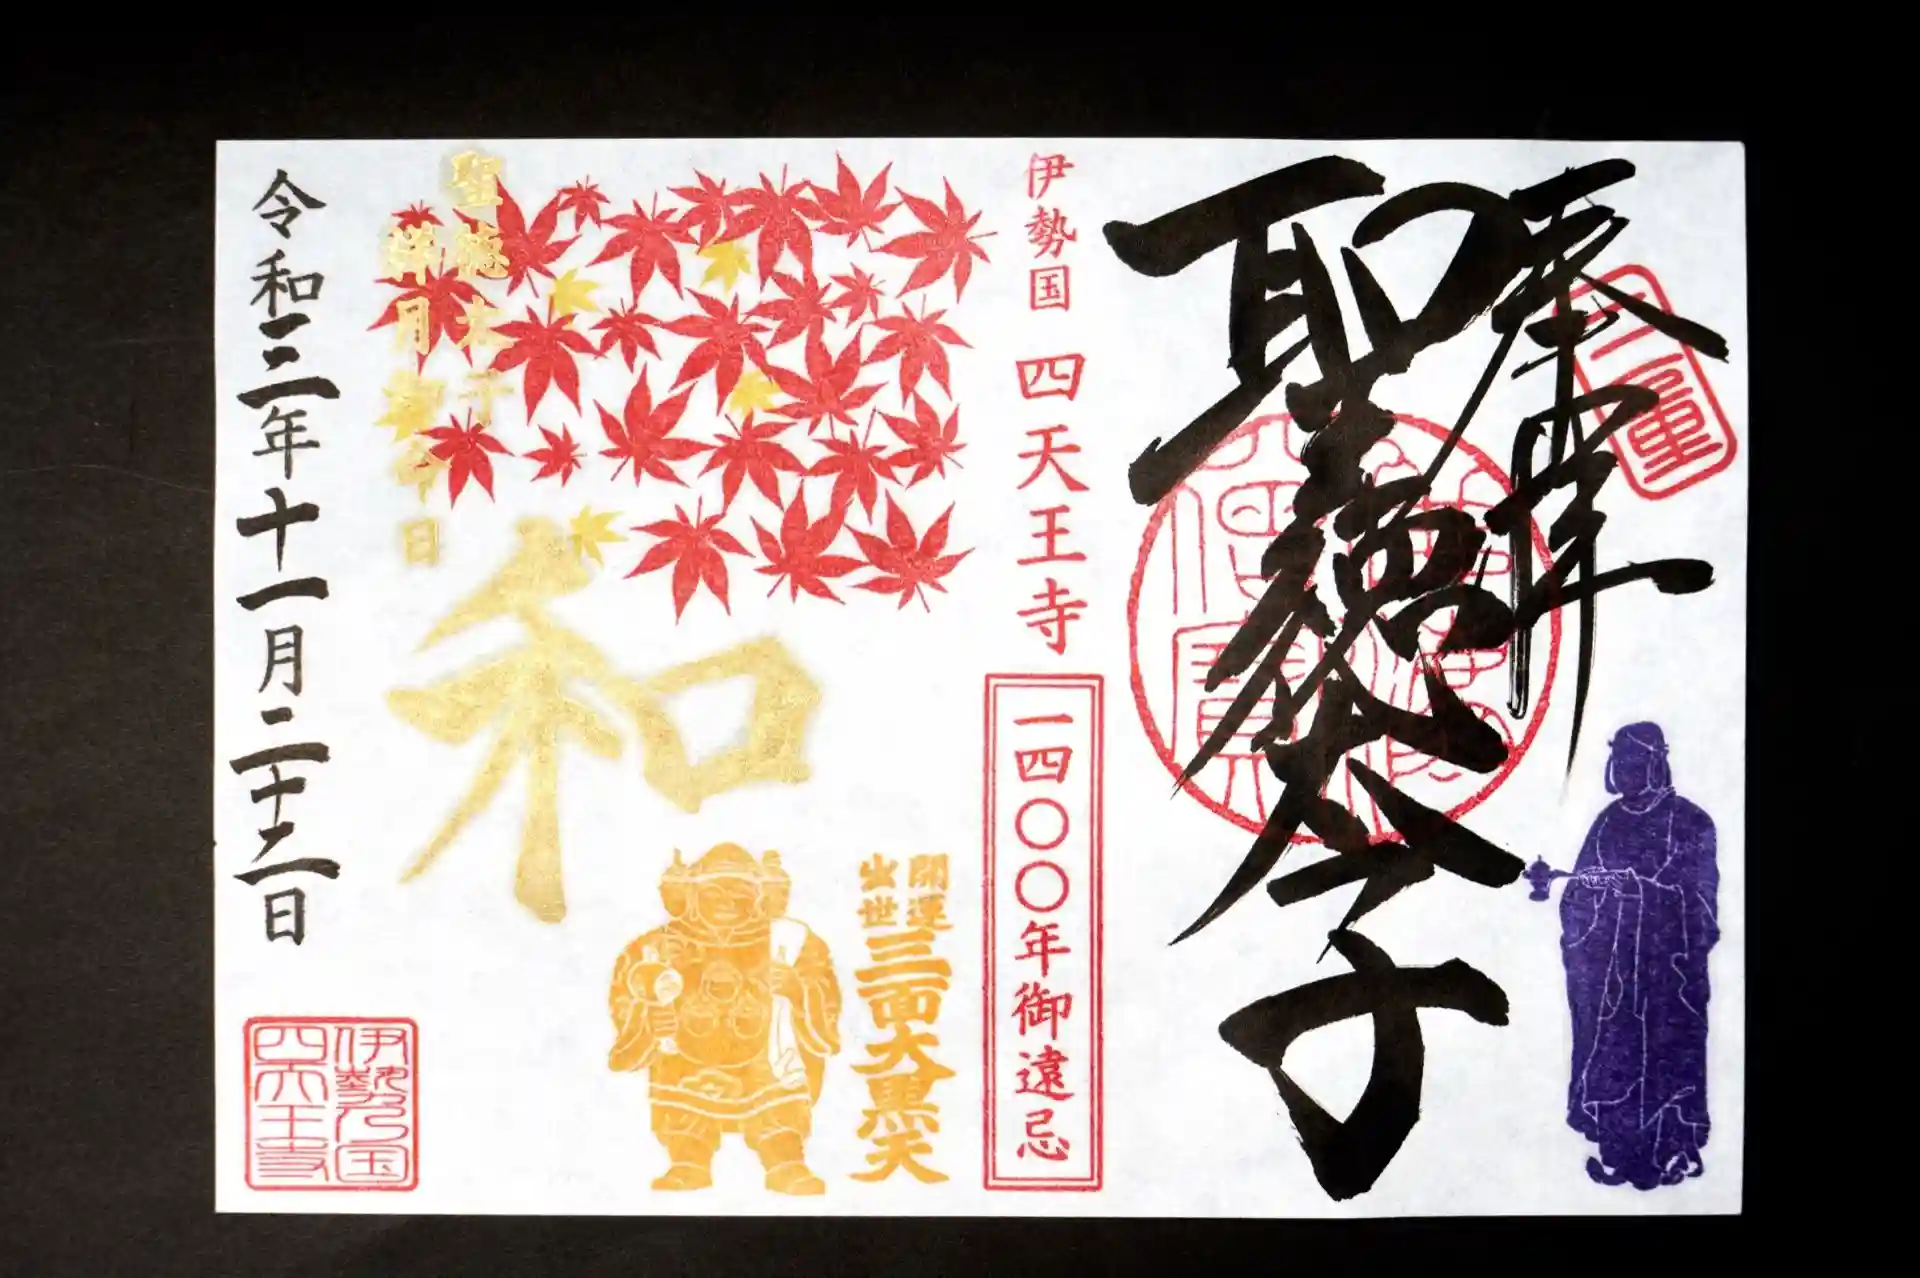 奉拝
三重
聖徳太子
伊勢国 四天王寺
一四〇〇年御遠忌
開運
出世
三面大黒天
聖徳太子
祥月御命日
和
令和三年十一月二十二日
伊勢国
四天王寺